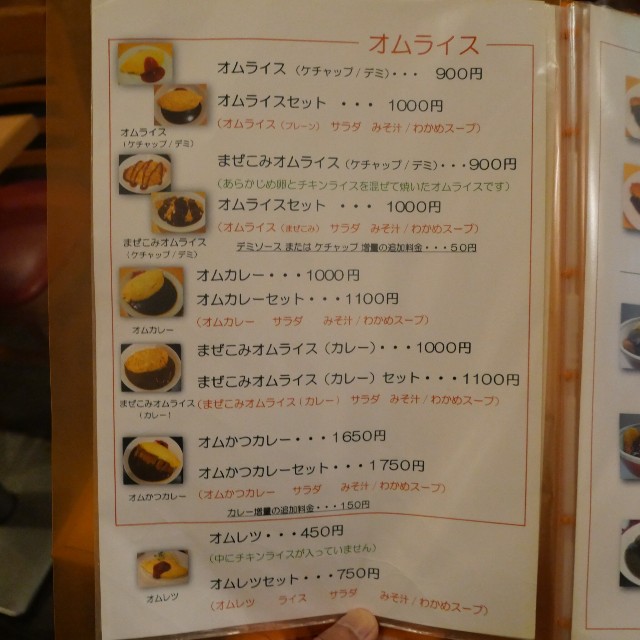 オムライス
オムライス (ケチャップ / デミ)・・・ 900円
オムライスセット ・・・ 1000円
(オムライス (プレーン) サラダ みそ汁 / わかめスープ)
オムライス
(ケチャップ / デミ)
まぜこみオムライス (ケチャップ / デミ)・・・900円
(あらかじめ卵とチキンライスを混ぜて焼いたオムライスです)
オムライスセット ・・・ 1000円
(オムライス (まぜこみ) サラダ みそ汁 / わかめスープ)
まぜこみオムライス
(ケチャップ / デミ)
デミソース または ケチャップ 増量の追加料金・・・50円
オムカレー・・・1000円
オムカレーセット・・・1100円
(オムカレー サラダ みそ汁 / わかめスープ)
オムカレー
まぜこみオムライス (カレー)・・・1000円
まぜこみオムライス (カレー) セット・・・1100円
(まぜこみオムライス (カレー) サラダ みそ汁 / わかめスープ)
まぜこみオムライス
(カレー)
オムかつカレー・・・1650円
オムかつカレーセット・・・1750円
(オムかつカレー サラダ みそ汁 / わかめスープ)
オムかつカレー
カレー増量の追加料金・・・150円
オムレツ・・・450円
(中にチキンライスが入っていません)
オムレツセット・・・750円
(オムレツ ライス サラダ みそ汁 / わかめスープ)
オムレツ